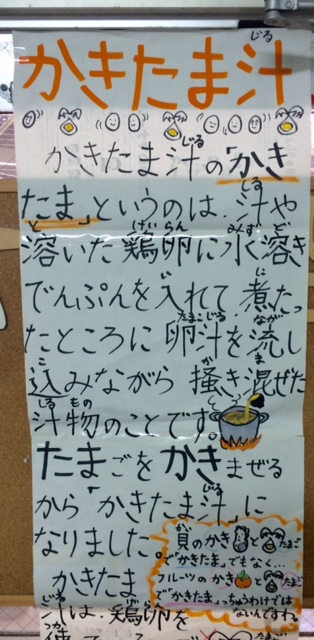 じる
かきたま汁
じる
かきたま汁の「かき
じる
たま」というのは、汁や
と けいらん みず と
溶いた鶏卵に水溶き
い に
でんぷんを入れて煮たっ
たまごじる なが
たところに卵汁を流し
こ か ま
込みながら掻き混ぜた
しる もの
汁物のことです。
たまごをかきまぜる
じる
から「かきたま汁」に
なりました。
かきたま
じる
汁は、鶏卵を
貝のかき と たまご
で"かきたま"でもなく…
フルーツのかき と たまご
で"かきたま"っちゅうわけでは
ないんですね